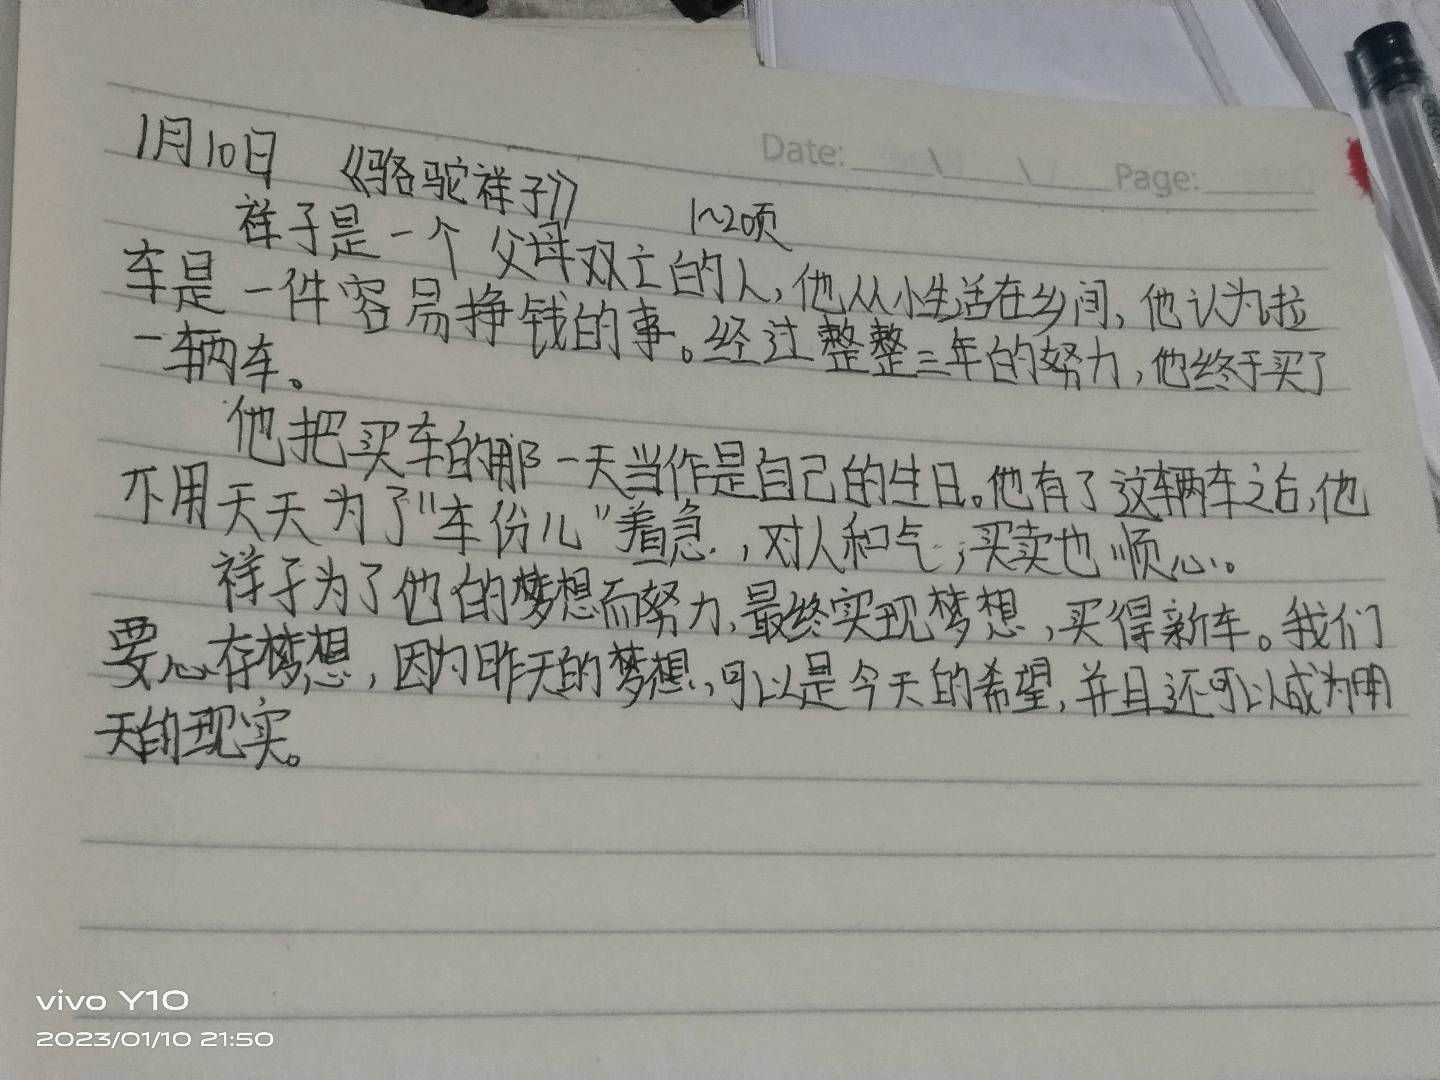 Date: \ \ Page:
1月10日 《骆驼祥子》 1~20页
祥子是一个父母双亡的人,他从小生活在乡间,他认为拉
车是一件容易挣钱的事。经过整整三年的努力,他终于买了
一辆车。
他把买车的那一天当作是自己的生日。他有了这辆车之后,他
不用天天为了"车份儿"着急,对人和气,买卖也顺心。
祥子为了他的梦想而努力,最终实现梦想,买得新车。我们
要心存梦想,因为昨天的梦想,可以是今天的希望,并且还可以成为明
天的现实。
vivo Y10
2023/01/10 21:50